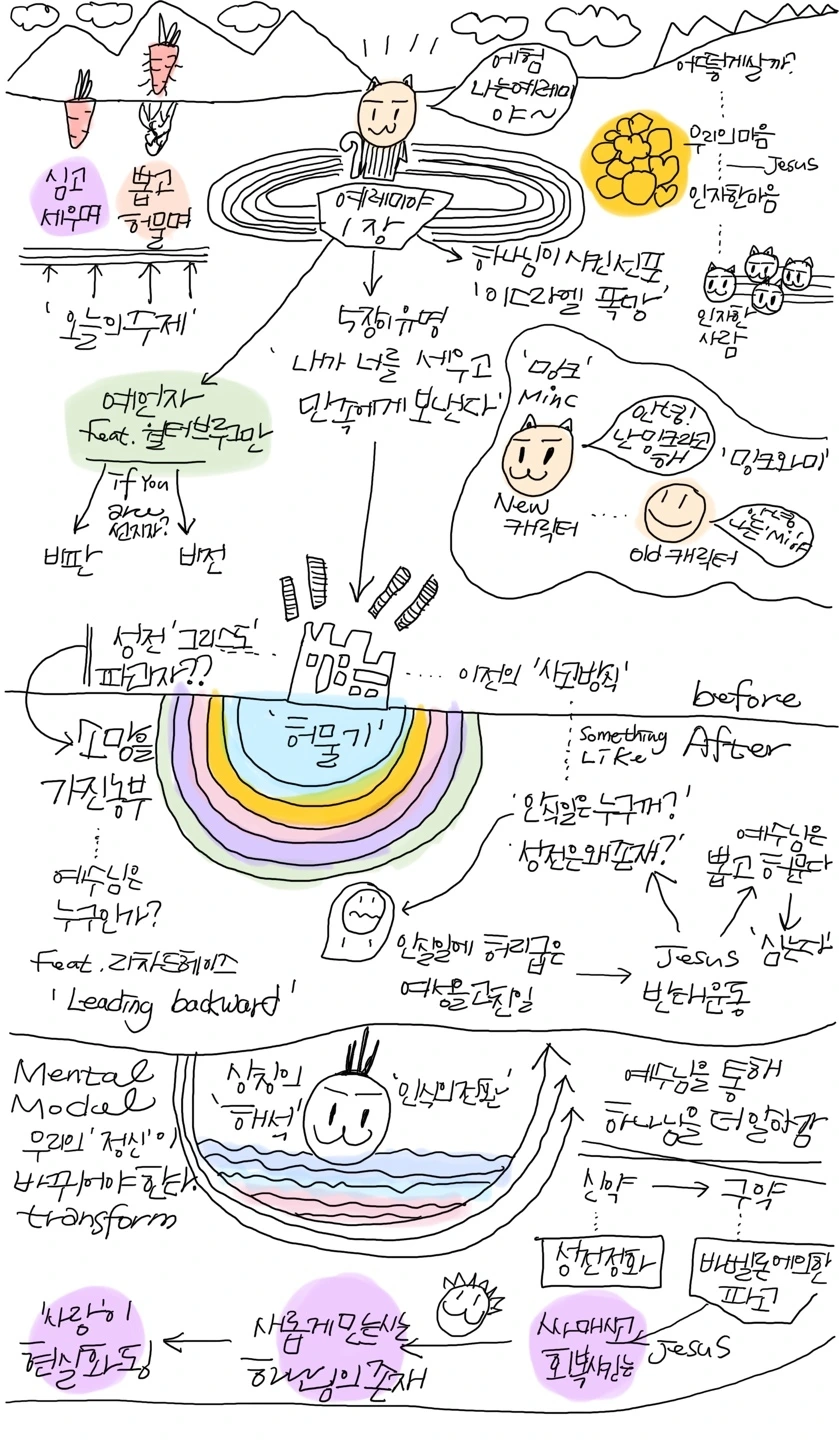 에헴
나는예레미
야~
어떻게살까?
우리의마음
Jesus
인자한마음
인자한
사람
심고
세우며
뽑고
허물며
'오늘의주제'
예레미야
1장
하나님이 시킨선포
'이스라엘 폭망'
5장이유명
'내가 너를 세우고
민족에게 보낸다'
예언자
feat. 월터브루그만
if you
are
선지자?
비판
비전
'밍크'
Minc
안녕!
난밍크라고
해
'밍크와미'
New
캐릭터
old 캐릭터
안녕
나는Mi야
성전'그리스도'
파괴자??
이전의 '사고방식'
before
After
'허물기'
소망을
가진농부
Something
Like
'안식일은누구꺼?'
'성전은왜존재?'
예수님은
뽑고허문다
'심는다'
예수님은
누구인가?
feat. 리차드헤이스
'Leading backward'
안식일에 허리굽은
여성을고친일
Jesus
반대운동
Mental
Model
우리의'정신'이
바뀌어야한다.
transform
상징의
'해석'
'인식의전환'
예수님을 통해
하나님을 더알아감
신약
구약
성전정화
바벨론에의한
파괴
싸매시고,
회복시키는
Jesus
새롭게만드시는
하나님의존재
'사랑'이
현실화됨